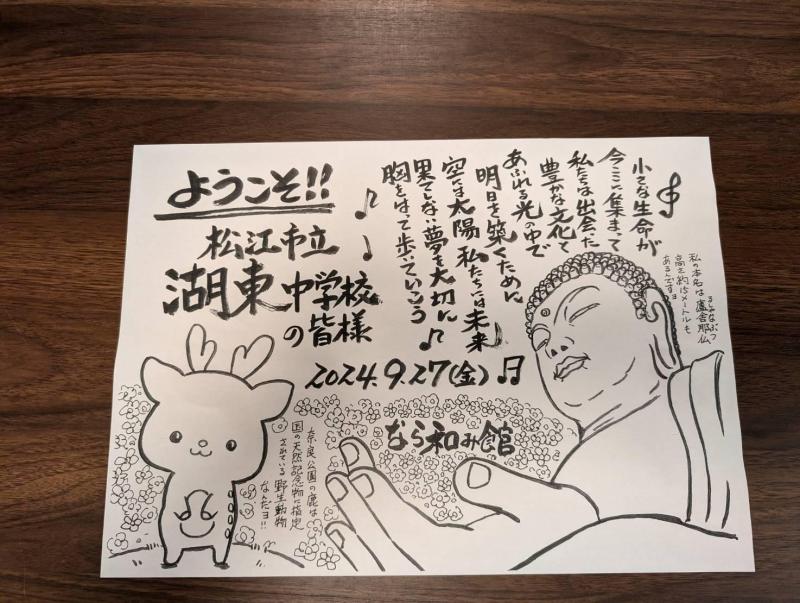 ようこそ!!
松江市立
湖東中学校
の皆様
小さな生命が
今ここに集まって
私たちは出会った
豊かな文化て
あふれる光の中で
明日を築くために
空には太陽 私たちには未来
果てしない夢を大切に
胸をはって歩いていこう
2024.9.27(金)
なら和み館
私の本名は盧舎那仏
るしゃなぶつ
高さ約15メートルも
あるんですヨ
奈良公園の鹿は
国の天然記念物に指定
されている野生動物
なんだヨ!!